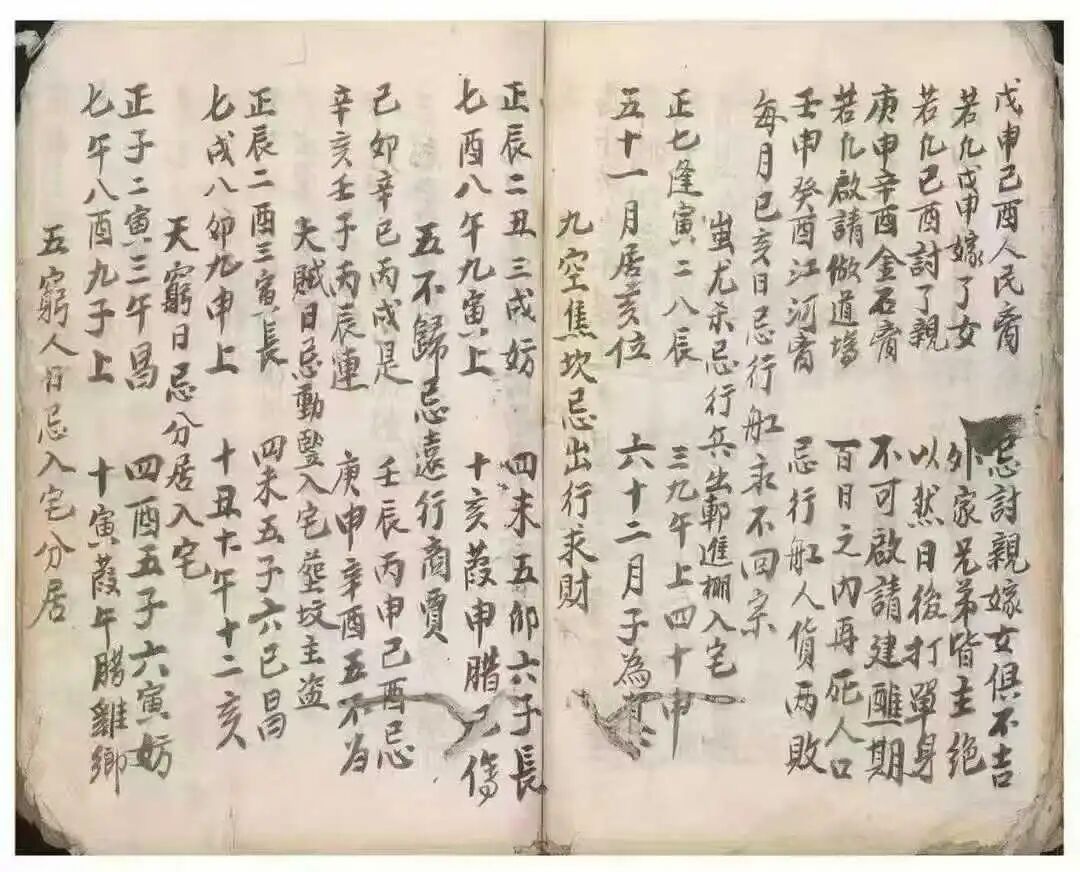 戊申己酉人民音 忌討親嫁女俱不吉
若凢戊申嫁了女 外家兄弟皆主绝
若凢己酉討了親 以然日後打單身
庚申辛酉金石音 不可啟請建醮期
若凢啟請做道場 百日之内再死人口
壬申癸酉江河音 忌行船人貨两敗
每月巳亥日忌行船永不回宗
蚩尤杀忌行兵出郭進棚入宅
正七逢寅二八辰 三九午上四十申
五十一月居亥位 六十二月子為
九空焦坎忌出行求財
正辰二丑三戌妨 四未五卯六子長
七酉八午九寅上 十亥葭申腊巳傷
五不歸忌遠行商賈
己卯辛巳丙戌是 壬辰丙申己酉忌
辛亥壬子丙辰連 庚申辛酉五不为
天賊日忌動豎入宅塟坟主盗
正辰二酉三寅長 四未五子六巳昌
七戌八卯九申上 十丑十午十二亥
天窮日忌分居入宅
正子二寅三午昌 四酉五子六寅妨
七午八酉九子上 十寅葭午腊雞鄉
五窮人日忌入宅分居